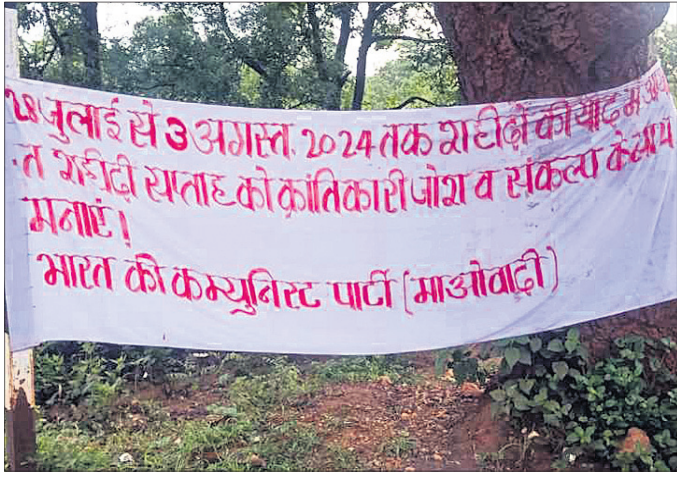 28 जुलाई से 3 अगस्त, 2024 तक शहीदों की याद में आयो
त शहीदी सप्ताह को क्रांतिकारी जोश व संकल्प के साथ
मनाएं!
भारत की कम्युनिस्ट पार्टी (माओवादी)